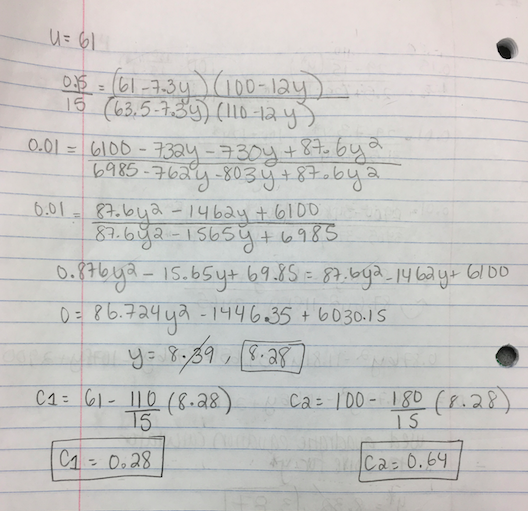 u = 61
0.15/15 = (61-7.3y)(100-12y)/(63.5-7.3y)(110-12y)
0.01 = 6100-732y-730y+87.6y²/6985-762y-803y+87.6y²
0.01 = 87.6y²-1462y+6100/87.6y²-1565y+6985
0.876y²-15.65y+69.85 = 87.6y²-1462y+6100
0 = 86.724y²-1446.35+6030.15
y = 8.39, 8.28
C1 = 61-110/15(8.28) C2 = 100-180/15(8.28)
C1 = 0.28 C2 = 0.64